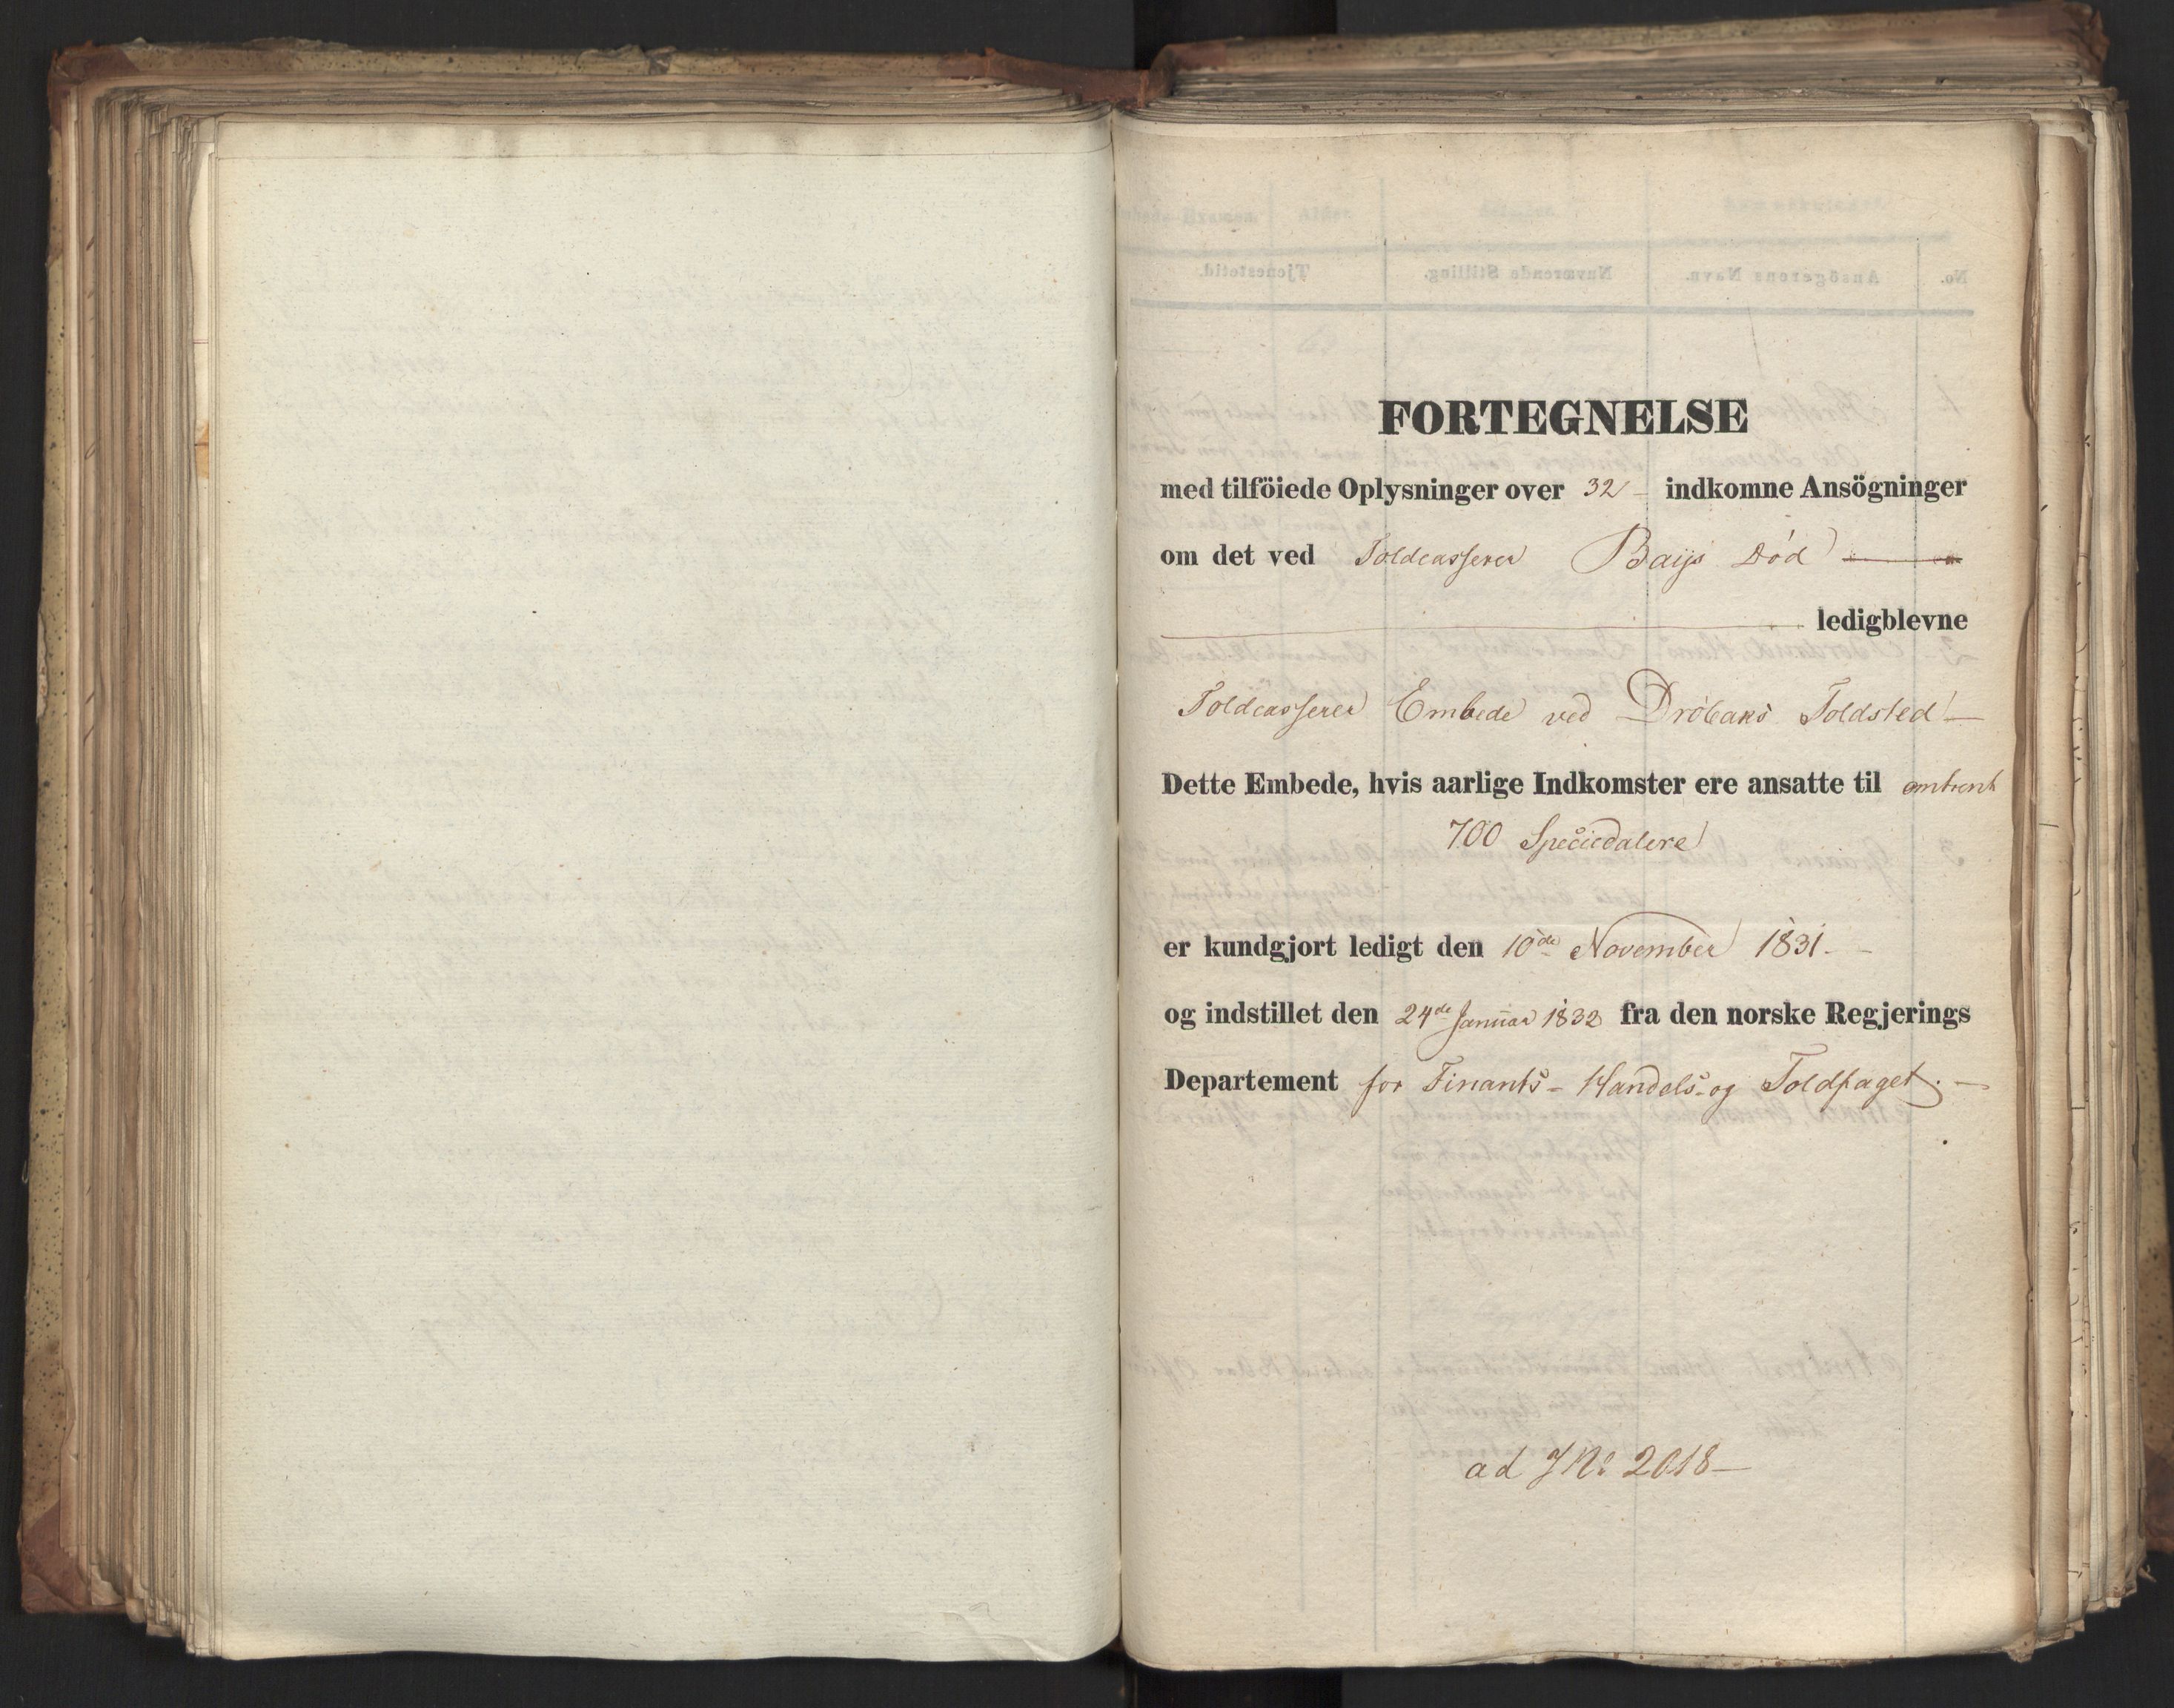 FORTEGNELSE
med tilföiede Oplysninger over 32 indkomne Ansögninger
om det ved Toldcasserer Bays Död
ledigblevne
Toldcasserer Embede ved Dröbaks Toldsted
Dette Embede, hvis aarlige Indkomster ere ansatte til omtrent
700 Speciedalere
er kundgjort ledigt den 10de November 1831.
og indstillet den 24de Januar 1832 fra den norske Regjerings
Departement for Finants- Handels- og Toldfaget.
ad J No 2018